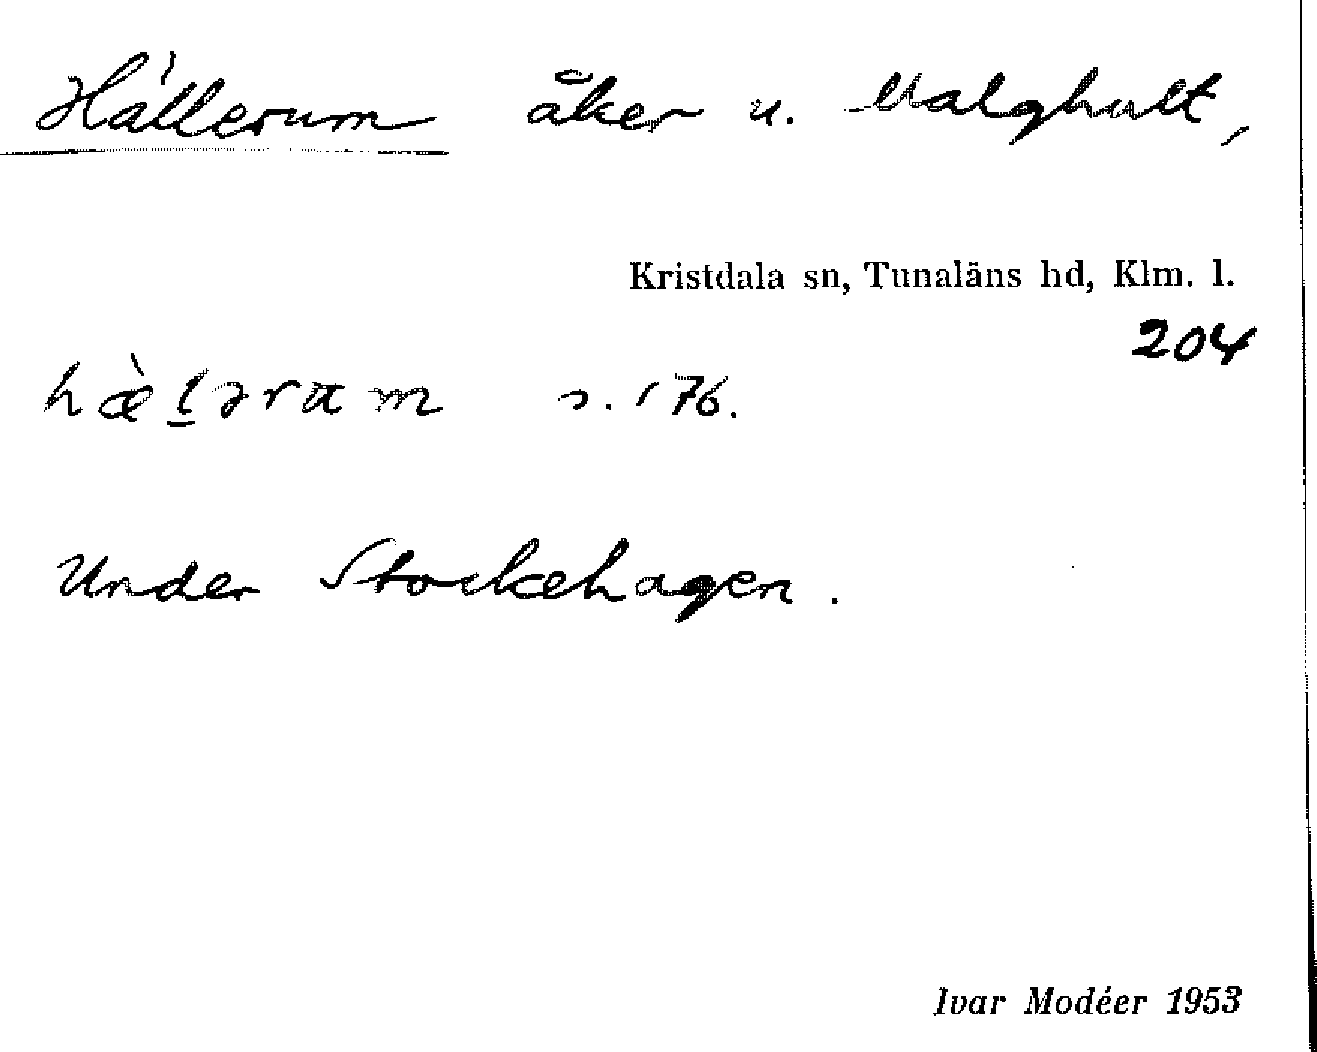 Hällerum åker u. Malghult,
Kristdala sn, Tunaläns hd, Klm. l.
204
hæ̀l̲əram s. 176.
Under Stockehagen.
Ivar Modéer 1953